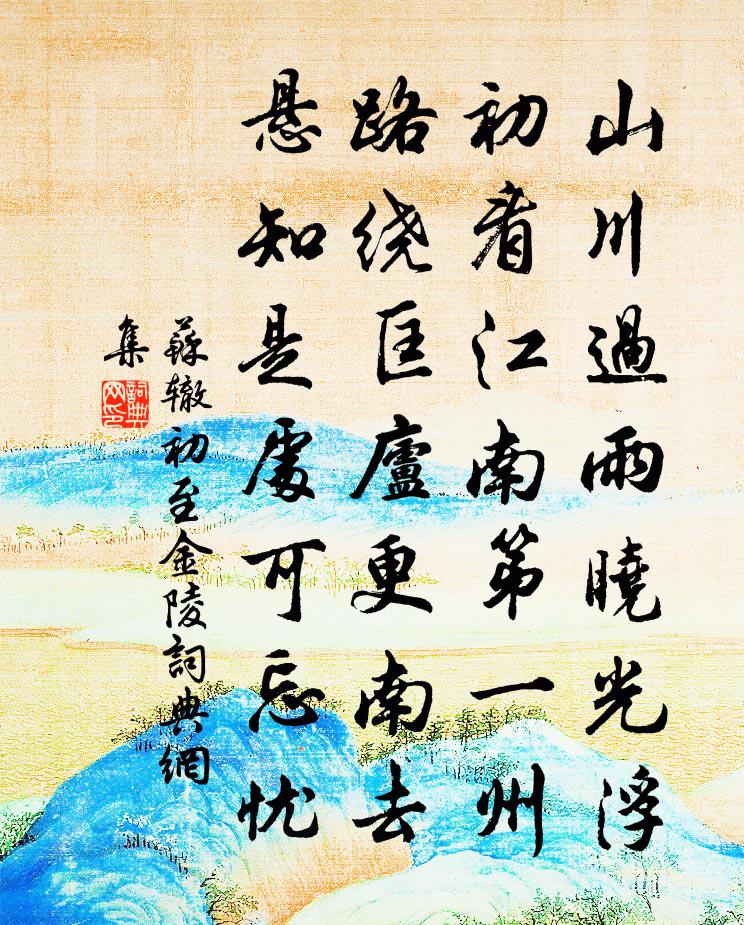 山川過雨曉光浮
初看江南第一州
路绕匡廬更南去
悬知是處可忘忧
蘇辙初至金陵詞典網
集
詞典网印